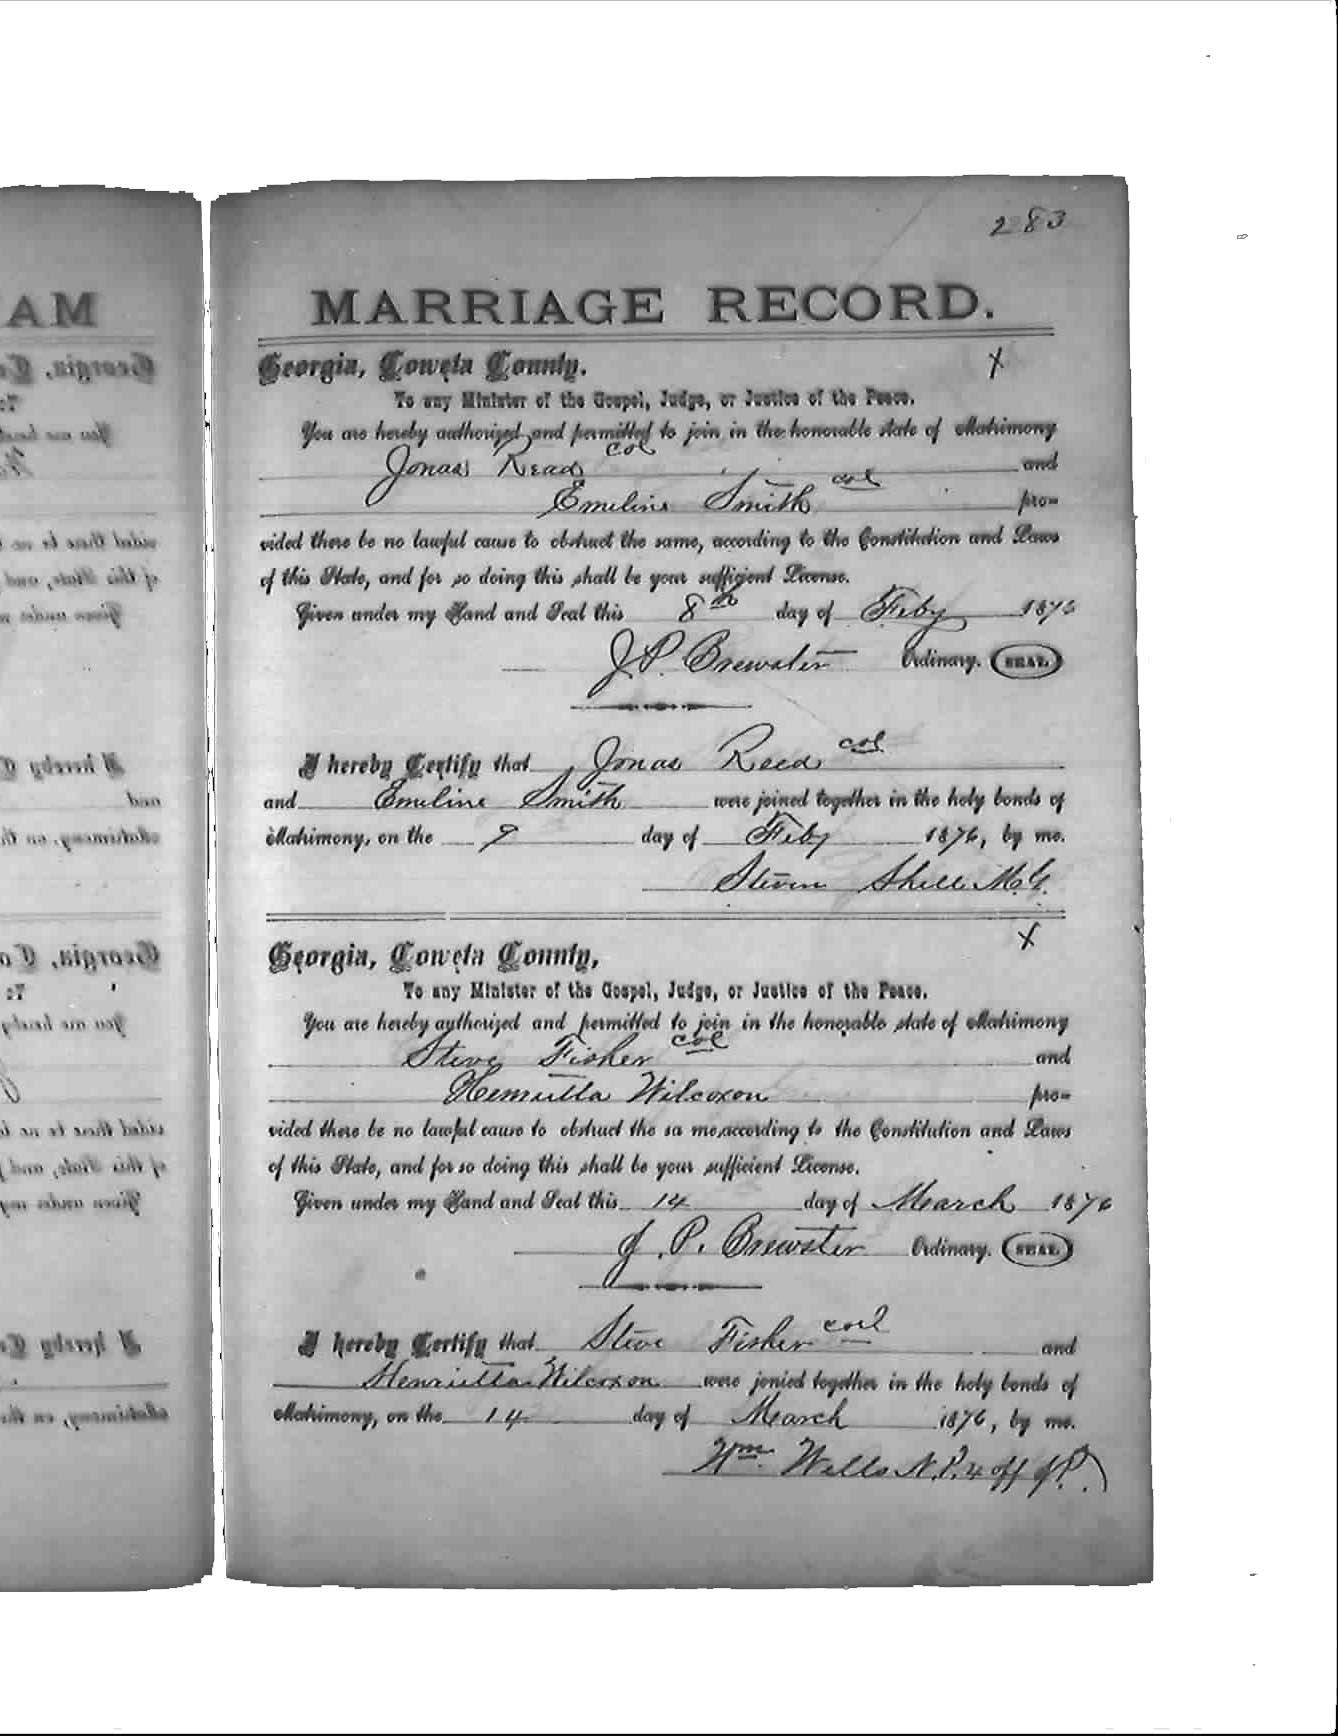 283
MARRIAGE RECORD.
Georgia, Coweta County.
X
To any Minister of the Gospel, Judge, or Justice of the Peace.
You are hereby authorized and permitted to join in the honorable state of Matrimony
Jonas Read col and
Emeline Smith col pro=
vided there be no lawful cause to obstruct the same, according to the Constitution and Laws
of this State, and for so doing this shall be your sufficient License.
Given under my Hand and Seal this 8th day of Feby 1876
J.P. Brewster Ordinary. SEAL.
I hereby Certify that Jonas Reed col
and Emeline Smith were joined together in the holy bonds of
Matrimony, on the 9 day of Feby 1876, by me.
Steven Shell M.G.
X
Georgia, Coweta County,
To any Minister of the Gospel, Judge, or Justice of the Peace.
You are hereby authorized and permitted to join in the honorable state of Matrimony
Steve Fisher col and
Henrietta Wilcoxon pro=
vided there be no lawful cause to obstruct the sa me, according to the Constitution and Laws
of this State, and for so doing this shall be your sufficient License.
Given under my Hand and Seal this 14 day of March 1876
J. P. Brewster Ordinary. SEAL.
I hereby Certify that Steve Fisher col and
Henrietta Wilcoxon were jonied together in the holy bonds of
Matrimony, on the 14 day of March 1876, by me.
Wm. Wells N.P. & off J.P.